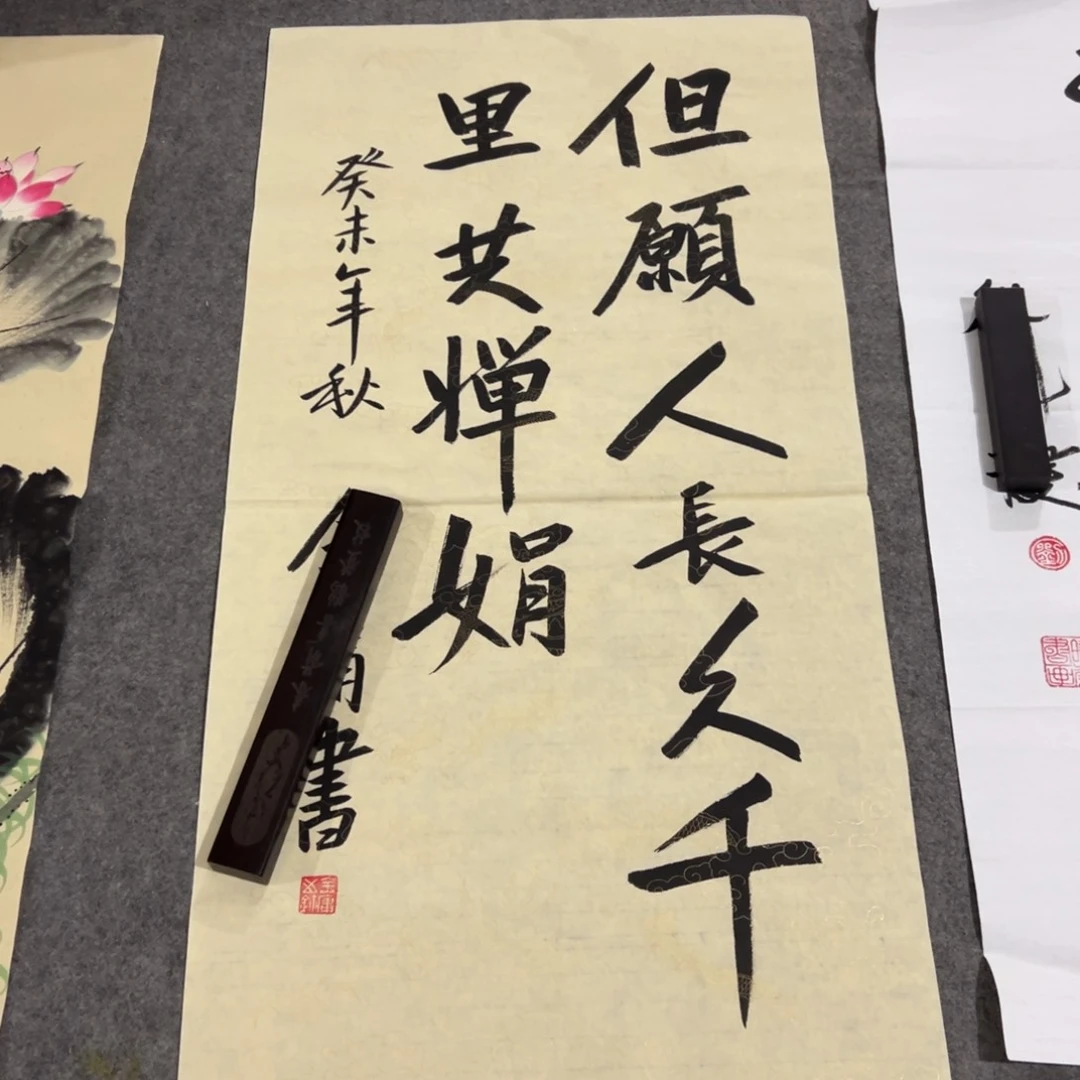 但願人長久千
里共婵娟
癸未年秋
書
劉